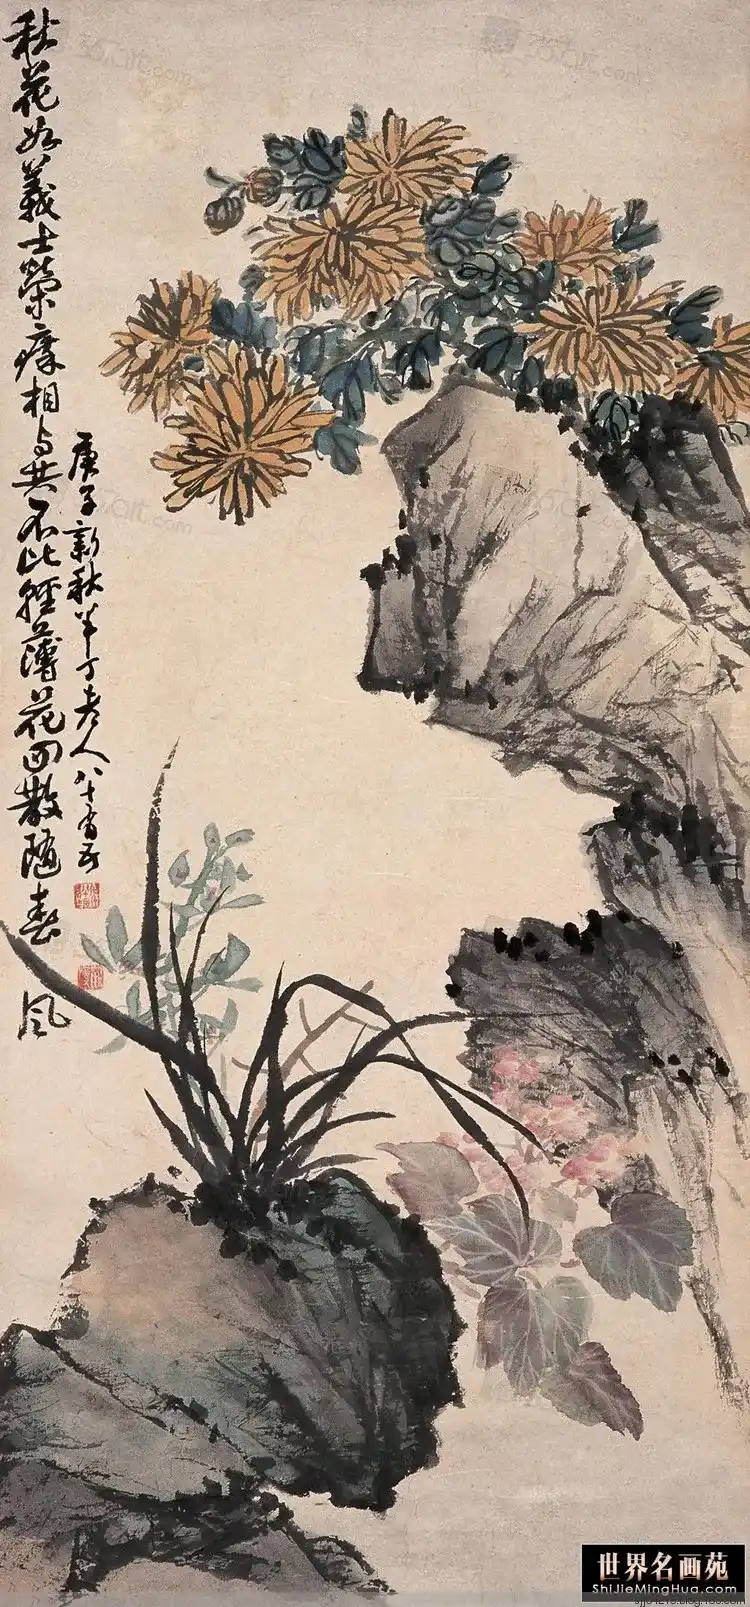 秋花如義士榮瘁相与共不比輕薄花四散隨春風
庚子新秋半丁老人八十有五
世界名画苑
ShiJieMingHua.com